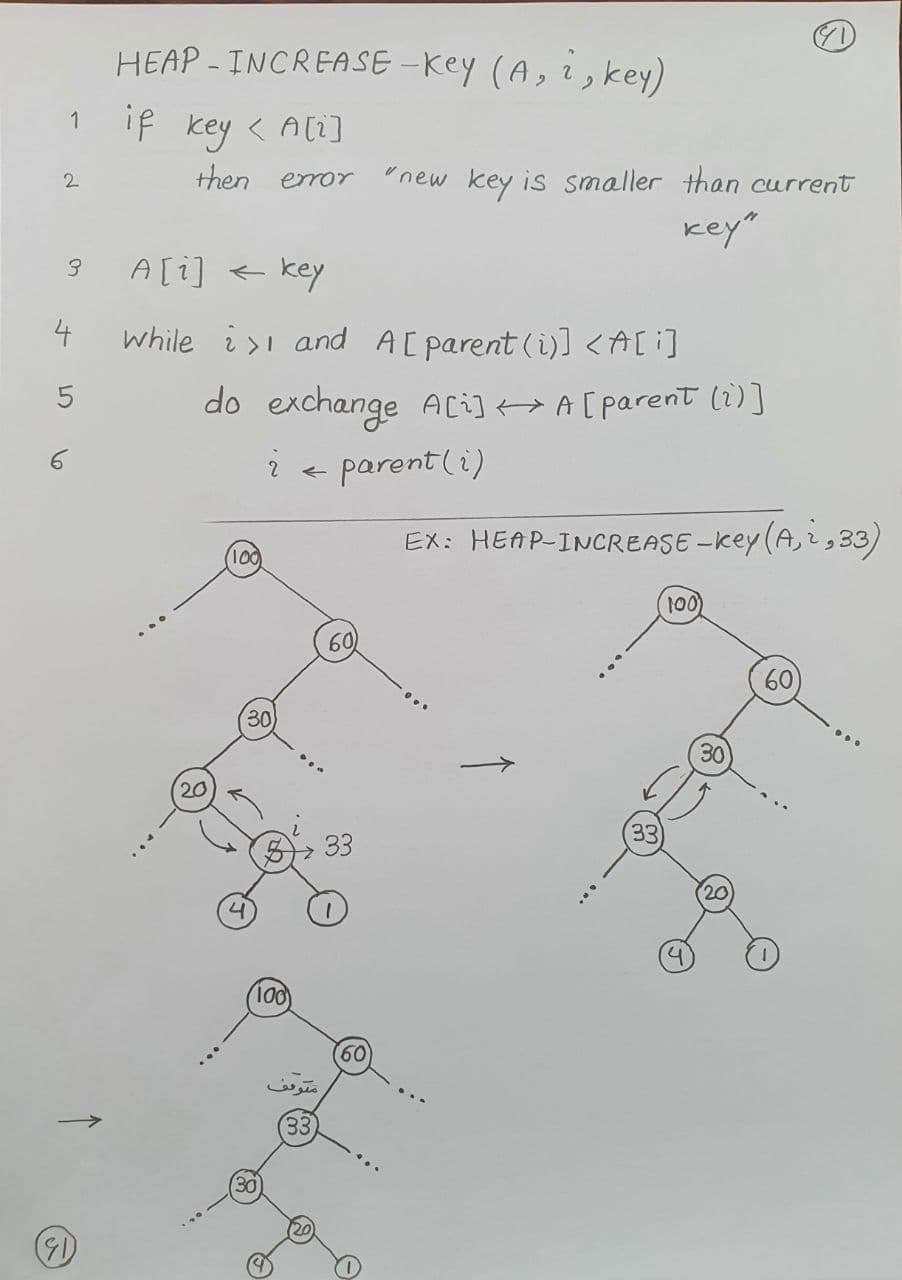 91
HEAP-INCREASE-Key (A, i, key)
1 if key < A[i]
2 then error "new key is smaller than current
key"
3 A[i] ← key
4 while i>1 and A[parent(i)] < A[i]
5 do exchange A[i] ↔ A[parent (i)]
6 i ← parent(i)
EX: HEAP-INCREASE-Key(A, i, 33)
100
60
30
20
i
5 → 33
4 1
→
100
60
30
33
20
4 1
→
100
60
متوقف
33
30
20
4 1
91